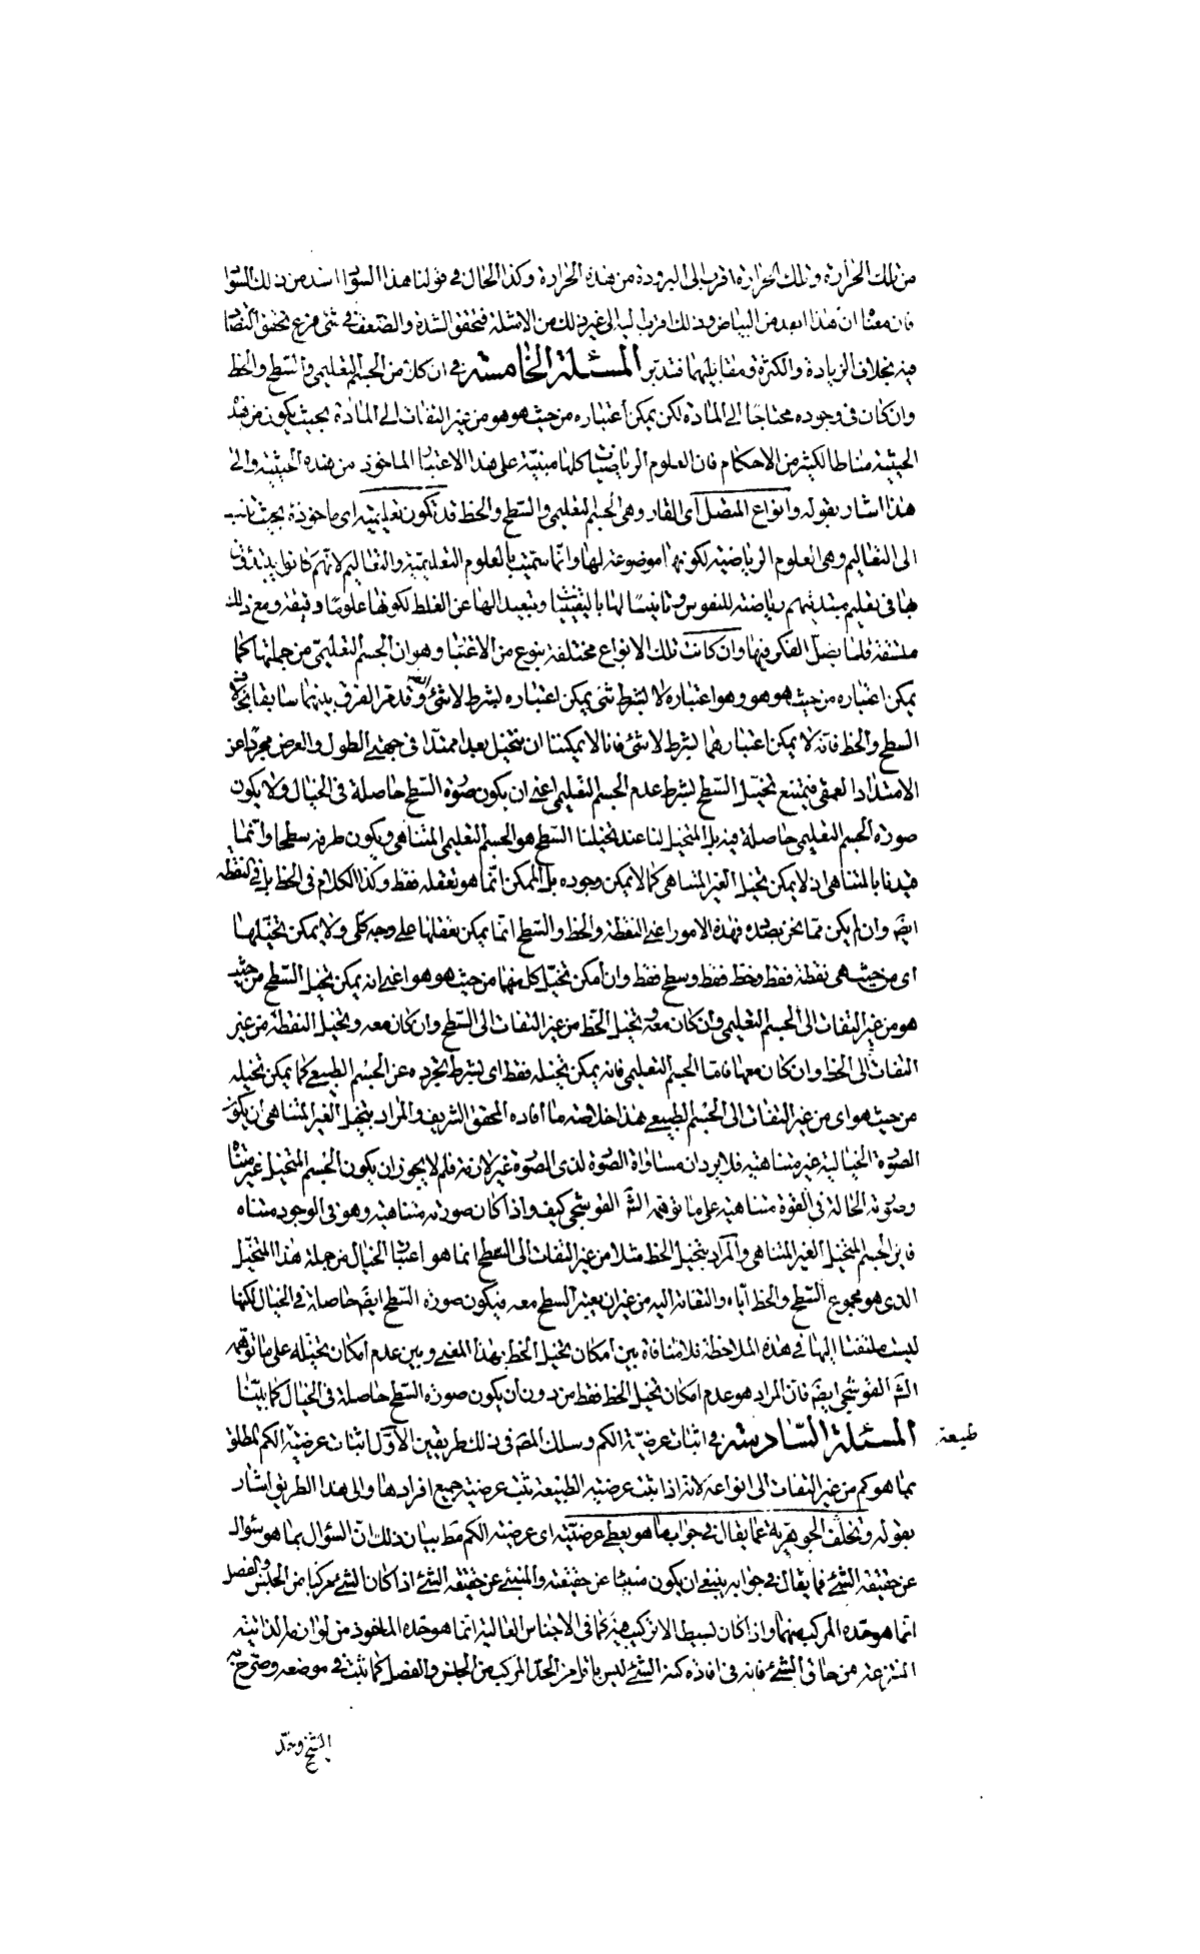 من تلك الحرارة وتلك الحرارة اقرب الى البرودة من هذه الحرارة وكذا الحال فى قولنا هذا السواد اشد من ذلك السواد
فان معناه ان هذا ابعد من البياض وذلك اقرب اليه الى غير ذلك من الامثلة فتحقق الشدة والضعف فى شئ فرع تحقق التضاد
فيه بخلاف الزيادة والكثرة ومقابليهما فتدبر المسئلة الخامسة فى ان كلا من الجسم التعليمى والسطح والخط
وان كان فى وجوده محتاجا الى المادة لكن يمكن اعتباره من حيث هو هو من غير التفات الى المادة بحيث يكون من هذه
الحيثية مناطا لكثير من الاحكام فان العلوم الرياضيات كلها مبنية على هذا الاعتبار الماخوذ من هذه الحيثية والى
هذا اشار بقوله وانواع المتصل اى القار وهى الجسم التعليمى والسطح والخط قد تكون تعليمية اى ماخوذة بحيث تنسب
الى التعاليم وهى العلوم الرياضية لكونها موضوعة لها وانما سميت بالعلوم التعليمية والتعاليم لانهم كانوا يبتدؤن
بها فى تعليم مبتديهم رياضة للنفوس وتانيسا لها باليقينيات وتبعيدا لها عن الغلط لكونها علوما دقيقة ومع ذلك
متسقة قلما يضل الفكر فيها وان كانت تلك الانواع مختلفة بنوع من الاعتبار وهو ان الجسم التعليمى من جملتها كما
يمكن اعتباره من حيث هو هو وهو اعتباره لا بشرط شئ يمكن اعتباره بشرط لا شئ ايضا وقد مر الفرق بينهما سابقا بخلاف
السطح والخط فانه لا يمكن اعتبارهما بشرط لا شئ فانا لا يمكننا ان نتخيل بعدا ممتدا فى جهتى الطول والعرض مجردا عن
الامتداد العمقى فيمتنع تخيل السطح بشرط عدم الجسم التعليمى اعنى ان يكون صورة السطح حاصلة فى الخيال ولا يكون
صورة الجسم التعليمى حاصلة فيه بل المتخيل لنا عند تخيلنا السطح هو الجسم التعليمى المتناهى ويكون طرفه سطحا وانما
قيدنا بالمتناهى اذ لا يمكن تخيل الغير المتناهى كما لا يمكن وجوده بل الممكن انما هو تعقله فقط وكذا الكلام فى الخط بل فى النقطة
ايضا وان لم يكن مما نحن بصدده فهذه الامور اعنى النقطة والخط والسطح انما يمكن تعقلها على وجه كلى ولا يمكن تخيلها
اى من حيث هى نقطة فقط وخط فقط وسطح فقط وان امكن تخيل كل منها من حيث هو هو اعنى انه يمكن تخيل السطح من حيث
هو من غير التفات الى الجسم التعليمى وان كان معه وتخيل الخط من غير التفات الى السطح وان كان معه وتخيل النقطة من غير
التفات الى الخط وان كان معها فاما الجسم التعليمى فانه يمكن تخيله فقط اى بشرط تجرده عن الجسم الطبيعى كما يمكن تخيله
من حيث هو اى من غير التفات الى الجسم الطبيعى هذا خلاصة ما افاده المحقق الشريف والمراد بتخيل الغير المتناهى ان يكون
الصورة الخيالية غير متناهية فلا يرد ان مساواة الصورة لذى الصورة غير لازمة فلم لا يجوز ان يكون الجسم المتخيل غير متناه
وصورته الحالة فى القوة متناهية على ما توهمه الش القوشجى كيف واذا كان صورته متناهية وهو فى الوجود متناه
فاين الجسم المتخيل الغير المتناهى والمراد بتخيل الخط مثلا من غير التفات الى السطح انما هو اعتبار الخيال من جملة هذا المتخيل
الذى هو مجموع السطح والخط اياه والتفاته اليه من غير ان يعتبر السطح معه فيكون صورة السطح ايضا حاصلة فى الخيال لكنها
ليست ملتفتا اليها فى هذه الملاحظة فلا منافاة بين امكان تخيل الخط بهذا المعنى وبين عدم امكان تخيله على ما توهمه
الش القوشجى ايضا فان المراد هو عدم امكان تخيل الخط فقط من دون ان يكون صورة السطح حاصلة فى الخيال كما بينا
المسئلة السادسة فى اثبات عرضية الكم وسلك المص فى ذلك طريقين الاول اثبات عرضية الكم المطلق
طبيعة
بما هو كم من غير التفات الى انواعه لانه اذا ثبت عرضية الطبيعة ثبت عرضية جميع افرادها والى هذا الطريق اشار
بقوله وتخلف الجوهرية عما يقال فى جواب ما هو يعطى عرضيته اى عرضية الكم مط بيان ذلك ان السؤال بما هو سؤال
عن حقيقة الشئ فما يقال فى جوابه ينبغى ان يكون منبئا عن حقيقته والمنبئ عن حقيقة الشئ اذا كان الشئ مركبا من الجنس والفصل
انما هو حده المركب منهما واذا كان بسيطا لا تركيب فيه كما فى الاجناس العالية انما هو حده الماخوذ من لوازمه الذاتية
المنتزعة من حاق الشئ فانه فى افادة كنه الشئ ليس باقل من الحد المركب من الجنس والفصل كما ثبت فى موضعه وصرح به
الشيخ وحد